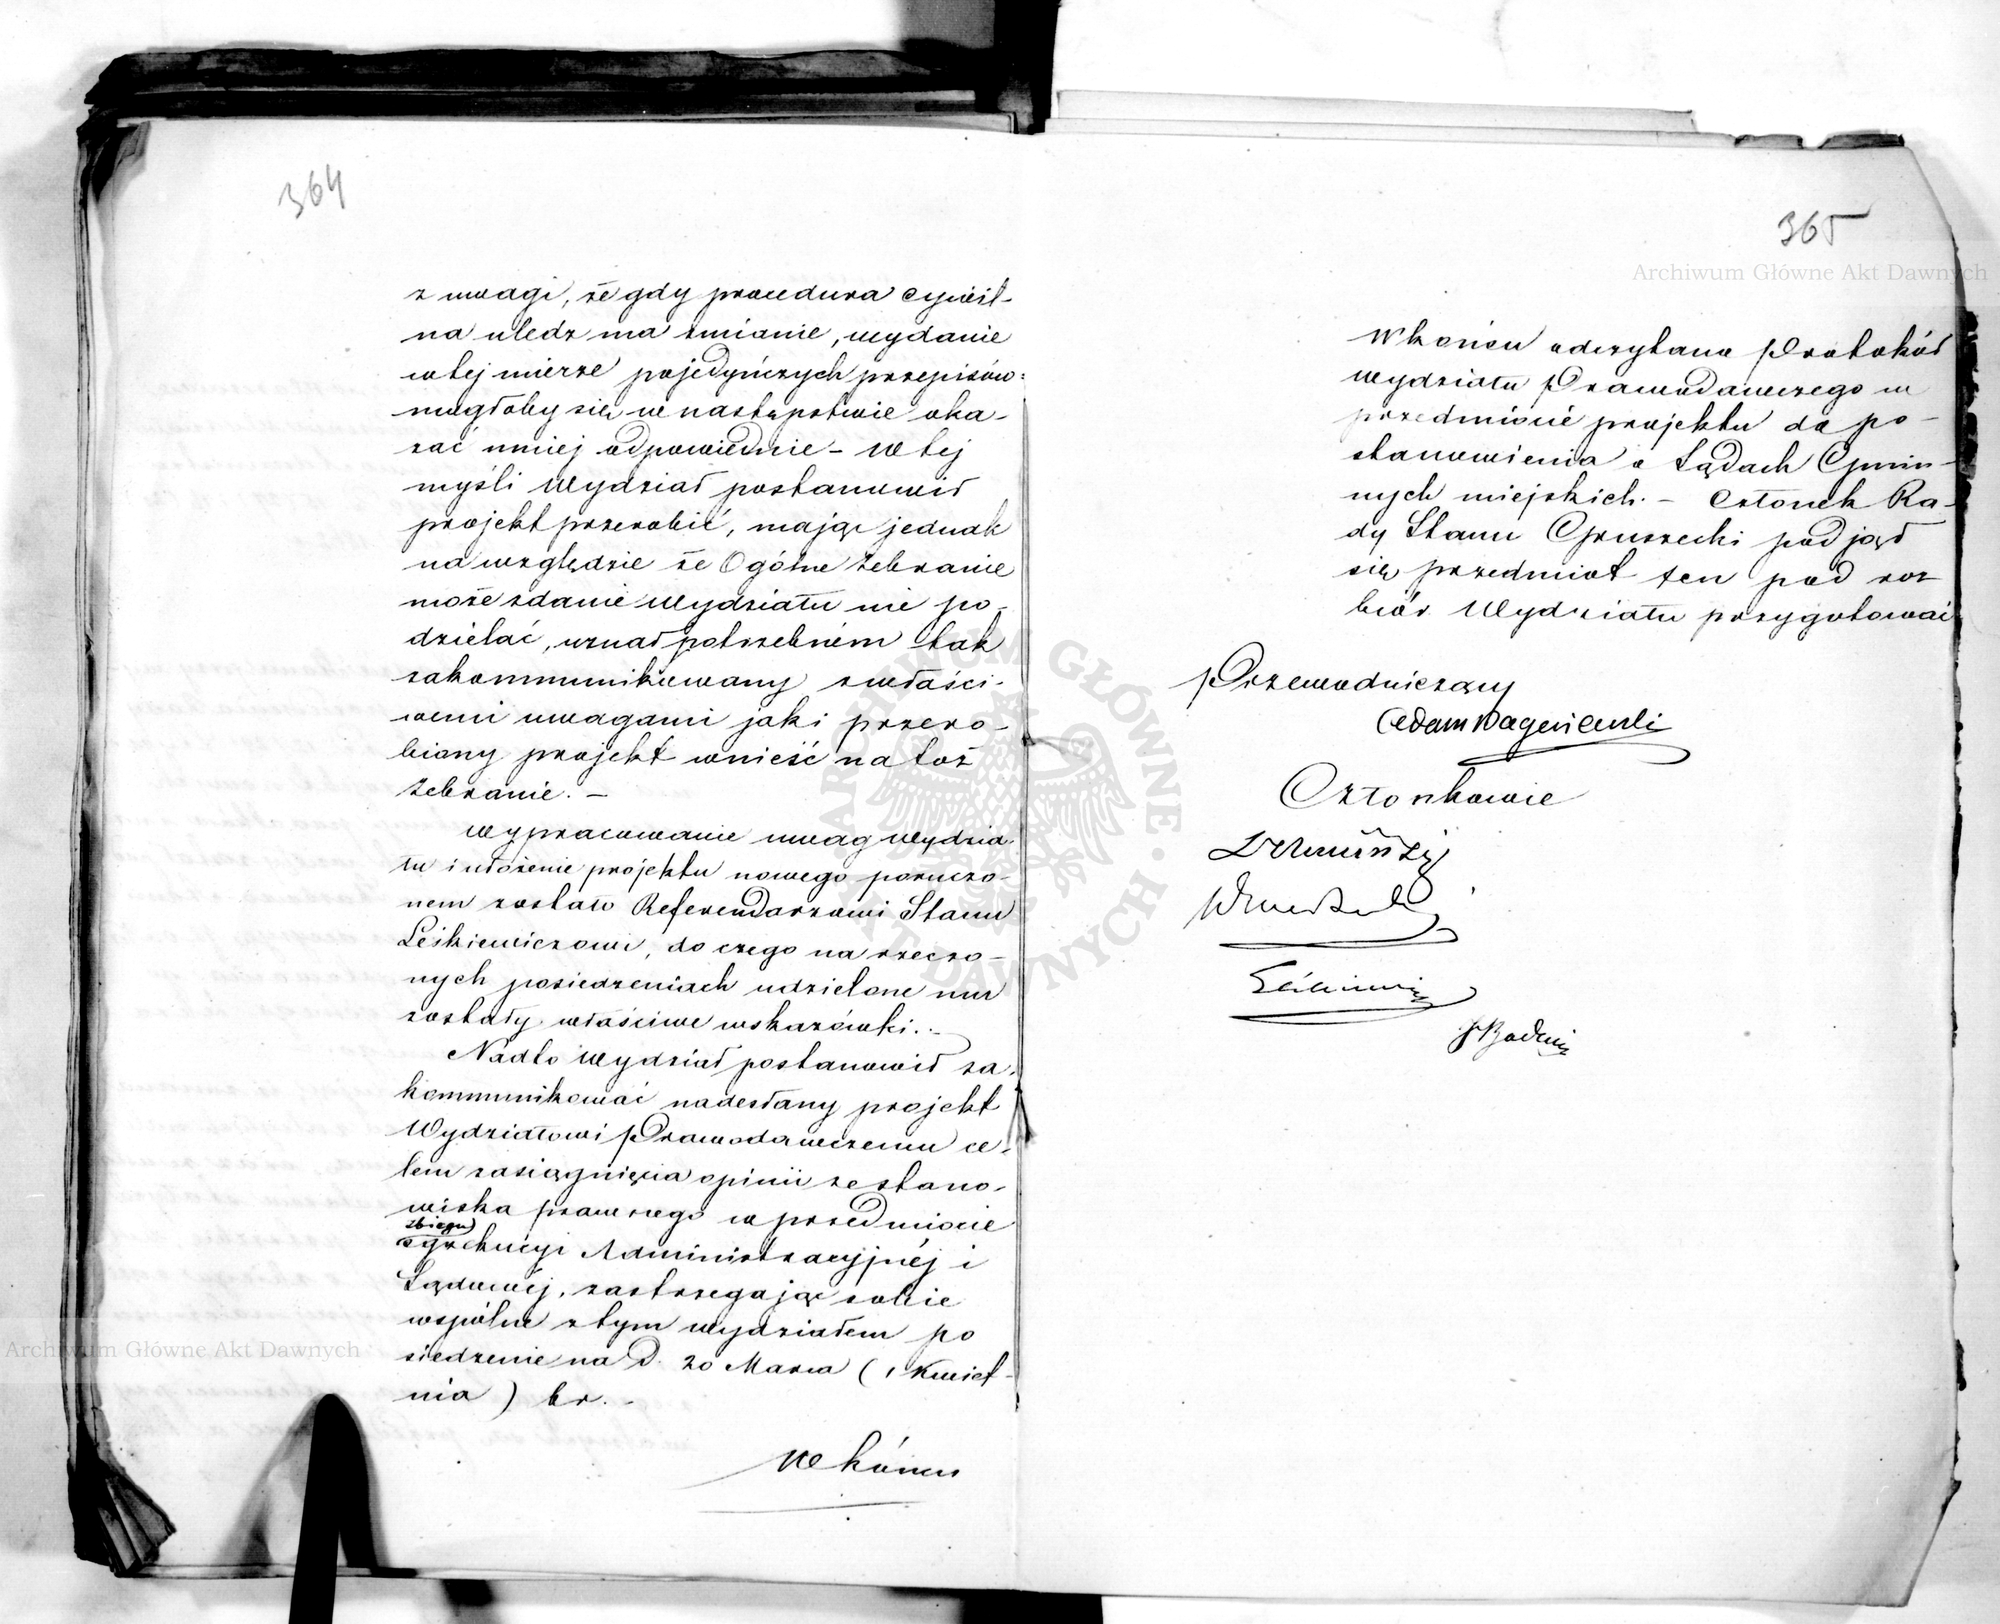 364
z uwagi, że gdy procedura cywil-
na uledz ma zmianie, wydanie
w tej mierze pojedyńczych przepisów
mogłoby się w następstwie oka-
zać mniej odpowiednie - W tej
myśli Wydział postanowił
projekt przerobić, mając jednak
na względzie że Ogólne Zebranie
może zdanie Wydziału nie po-
dzielać, uznał potrzebném tak
zakommunikowany z właści-
wemi uwagami jaki przero-
biony projekt wnieść na toż
Zebranie. -
Wypracowanie uwag Wydzia-
łu i ułożenie projektu nowego poruczo-
nem zostało Referendarzowi Stanu
Leśkiewiczowi, do czego na rzeczo-
nych posiedzeniach udzielone mu
zostały właściwe wskazówki. -
Nadto Wydział postanowił za-
kommunikować nadesłany projekt
Wydziałowi Prawodawczemu ce-
lem zasiągnięcia opinii ze stano-
wiska prawnego w przedmiocie
zbiegu
egzekucyi Administracyjnéj i
Sądowéj, zastrzegając sobie
wspólne z tym wydziałem po
siedzenie na d. 20 Marca (1 Kwiet-
nia) br. -
W końcu
365
W końcu odczytano Protokół
Wydziału Prawodawczego w
przedmiocie projektu do po-
stanowienia o Sądach Gmin-
nych miejskich. - Członek Ra-
dy Stanu Gruszecki podjął
się przedmiot ten pod roz
biór Wydziału przygotować
Przewodniczący
Członkowie
Archiwum Główne Akt Dawnych
Archiwum Główne Akt Dawnych
ARCHIWUM GŁÓWNE AKT DAWNYCH